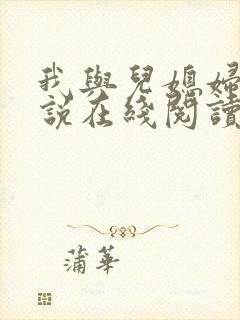 我與兒媳婦
說在綫閱讀
蒲華